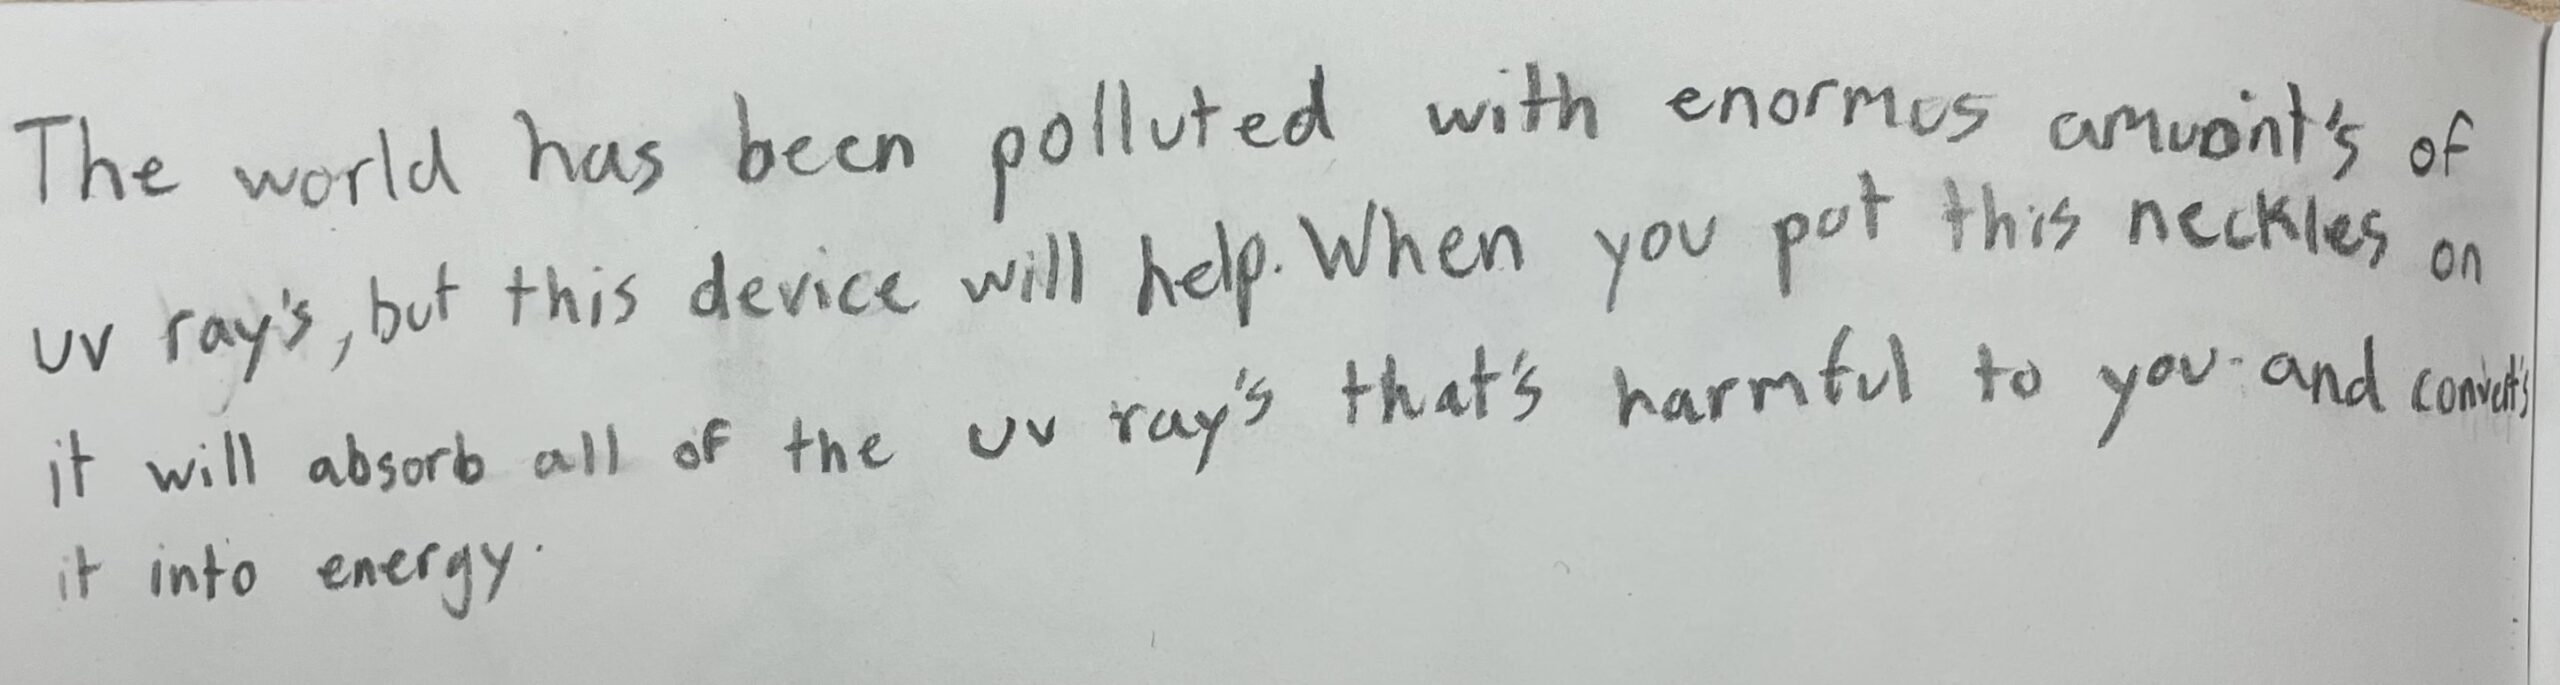 The world has been polluted with enormus amuoint's of
uv ray's, but this device will help. When you put this neckles on
it will absorb all of the uv ray's that's harmful to you and convert's
it into energy.